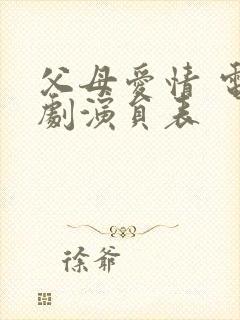 父母愛情 電
劇演員表
徐爺